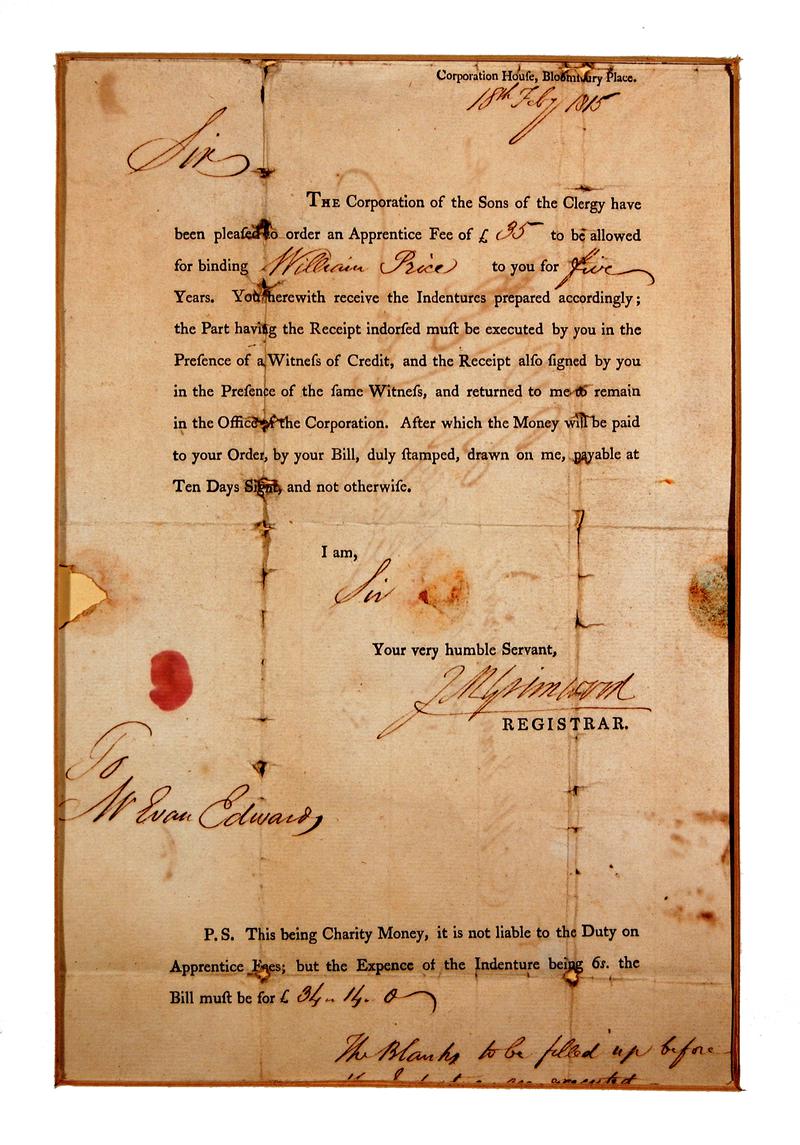 Corporation Houſe, Bloomſbury Place.
18th Feby 1815
Sir
THE Corporation of the Sons of the Clergy have
been pleaſed to order an Apprentice Fee of £ 35 to be allowed
for binding William Price to you for five
Years. You herewith receive the Indentures prepared accordingly;
the Part having the Receipt indorſed muſt be executed by you in the
Preſence of a Witneſs of Credit, and the Receipt alſo ſigned by you
in the Preſence of the ſame Witneſs, and returned to me to remain
in the Office of the Corporation. After which the Money will be paid
to your Order, by your Bill, duly ſtamped, drawn on me, payable at
Ten Days Sight, and not otherwiſe.
I am,
Sir
Your very humble Servant,
J M Grimwood
REGISTRAR.
To
Mr Evan Edwards
P. S. This being Charity Money, it is not liable to the Duty on
Apprentice Fees; but the Expence of the Indenture being 6s. the
Bill muſt be for £ 34.. 14.. 0
The Blanks to be filled up before
the are executed